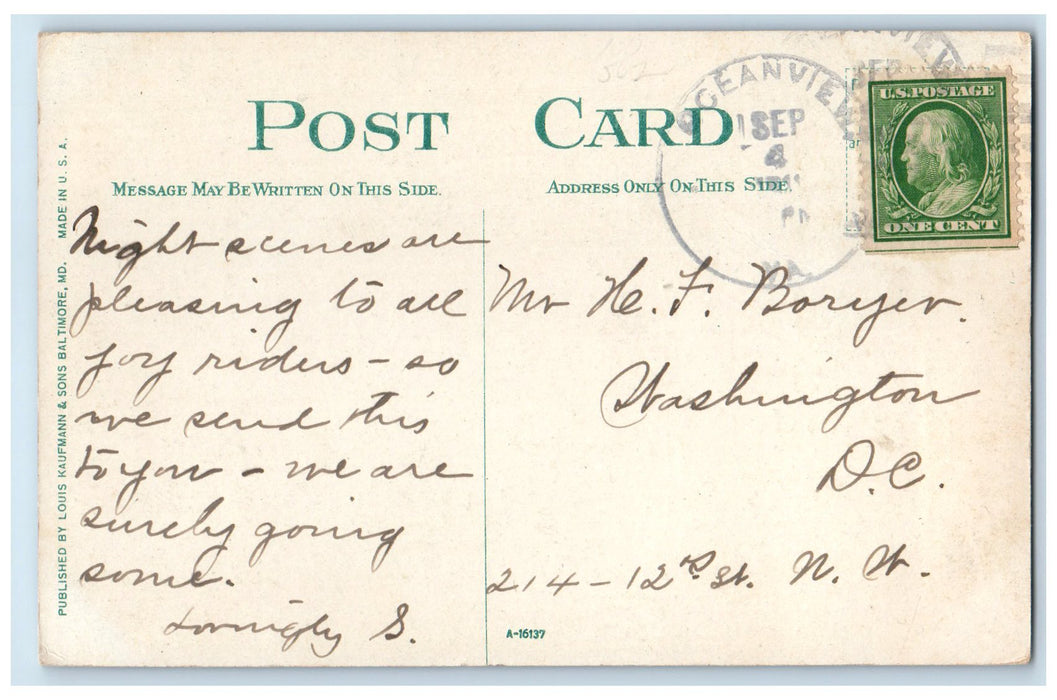 POST CARD
MESSAGE MAY BE WRITTEN ON THIS SIDE.
ADDRESS ONLY ON THIS SIDE.
OCEANVIEW
SEP
4
VA.
U.S. POSTAGE
ONE CENT
PUBLISHED BY LOUIS KAUFMANN & SONS BALTIMORE, MD. MADE IN U. S. A.
Night scenes are
pleasing to all
joy riders – so
we send this
to you – we are
surely going
some.
Lovingly S.
Mr H. F. Boryer.
Washington
D.C.
214 – 12th St. N. W.
A-16137